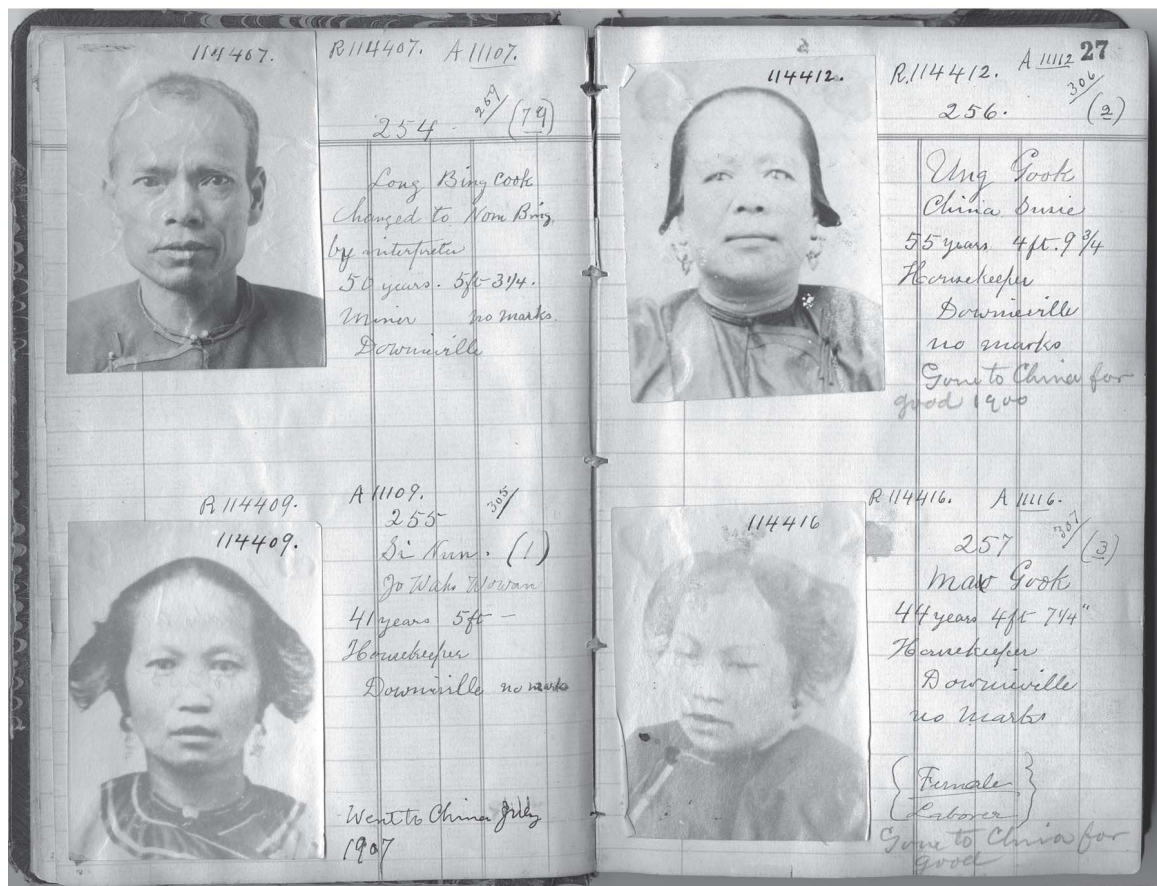 114407.
R 114407. A 11107.
254 267/ (79)
Long Bing Cook
Changed to Nom Bing
by interpreter
50 years. 5ft 3 1/4.
Miner no marks.
Downieville
R 114409. A 11109.
114409.
255 305/
Si Nun. (1)
Jo Wahs Wowan
41 years 5ft –
Housekeeper
Downieville no marks
Went to China July
1907
27
114412.
R. 114412. A 11112
256. 306/ (2)
Ung Gook
China Susie
55 years 4 ft. 9 3/4
Housekeeper
Downieville
no marks
Gone to China for
good 1900
R 114416. A 11116.
114416
257 307/ (3)
Maw Gook
44 years 4ft 7 1/4"
Housekeeper
Downieville
no marks
{ Female }
{ Laborer }
Gone to China for
good